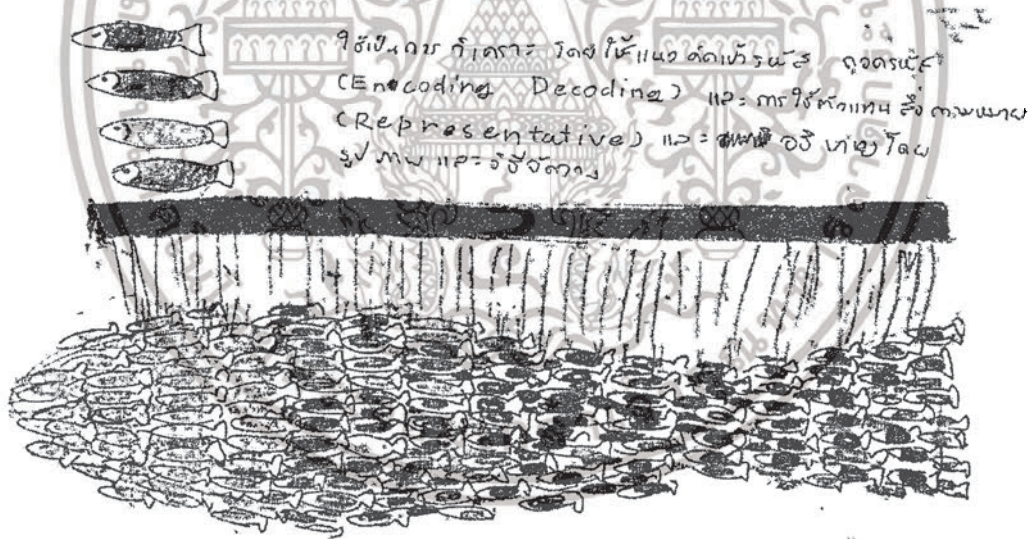 ใช้เป็นการ วิเคราะ โดยใช้แนว คิดเข้ารหัส ถอดรหัส
(Encoding Decoding) และ การใช้ตัวแทน สื่อ ความหมาย
(Representative) และ อธิบาย โดย
รูปภาพ และ วิธีจัดวาง